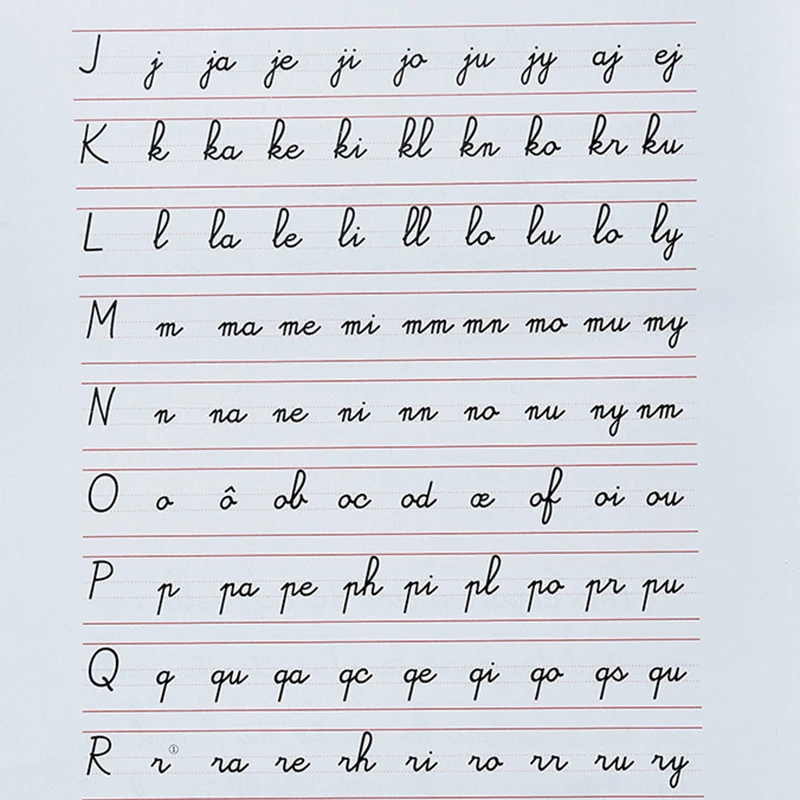 J j ja je ji jo ju jy aj ej
K k ka ke ki kl kn ko kr ku
L l la le li ll lo lu lo ly
M m ma me mi mm mn mo mu my
N n na ne ni nn no nu ny nm
O o ô ob oc od œ of oi ou
P p pa pe ph pi pl po pr pu
Q q qu qa qc qe qi qo qs qu
R r① ra re rh ri ro rr ru ry